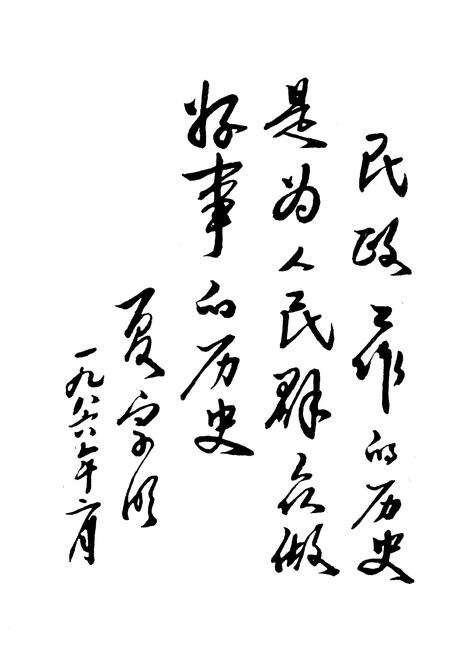 民政工作的历史
是为人民群众做
好事的历史
夏宗明
一九八六年六月